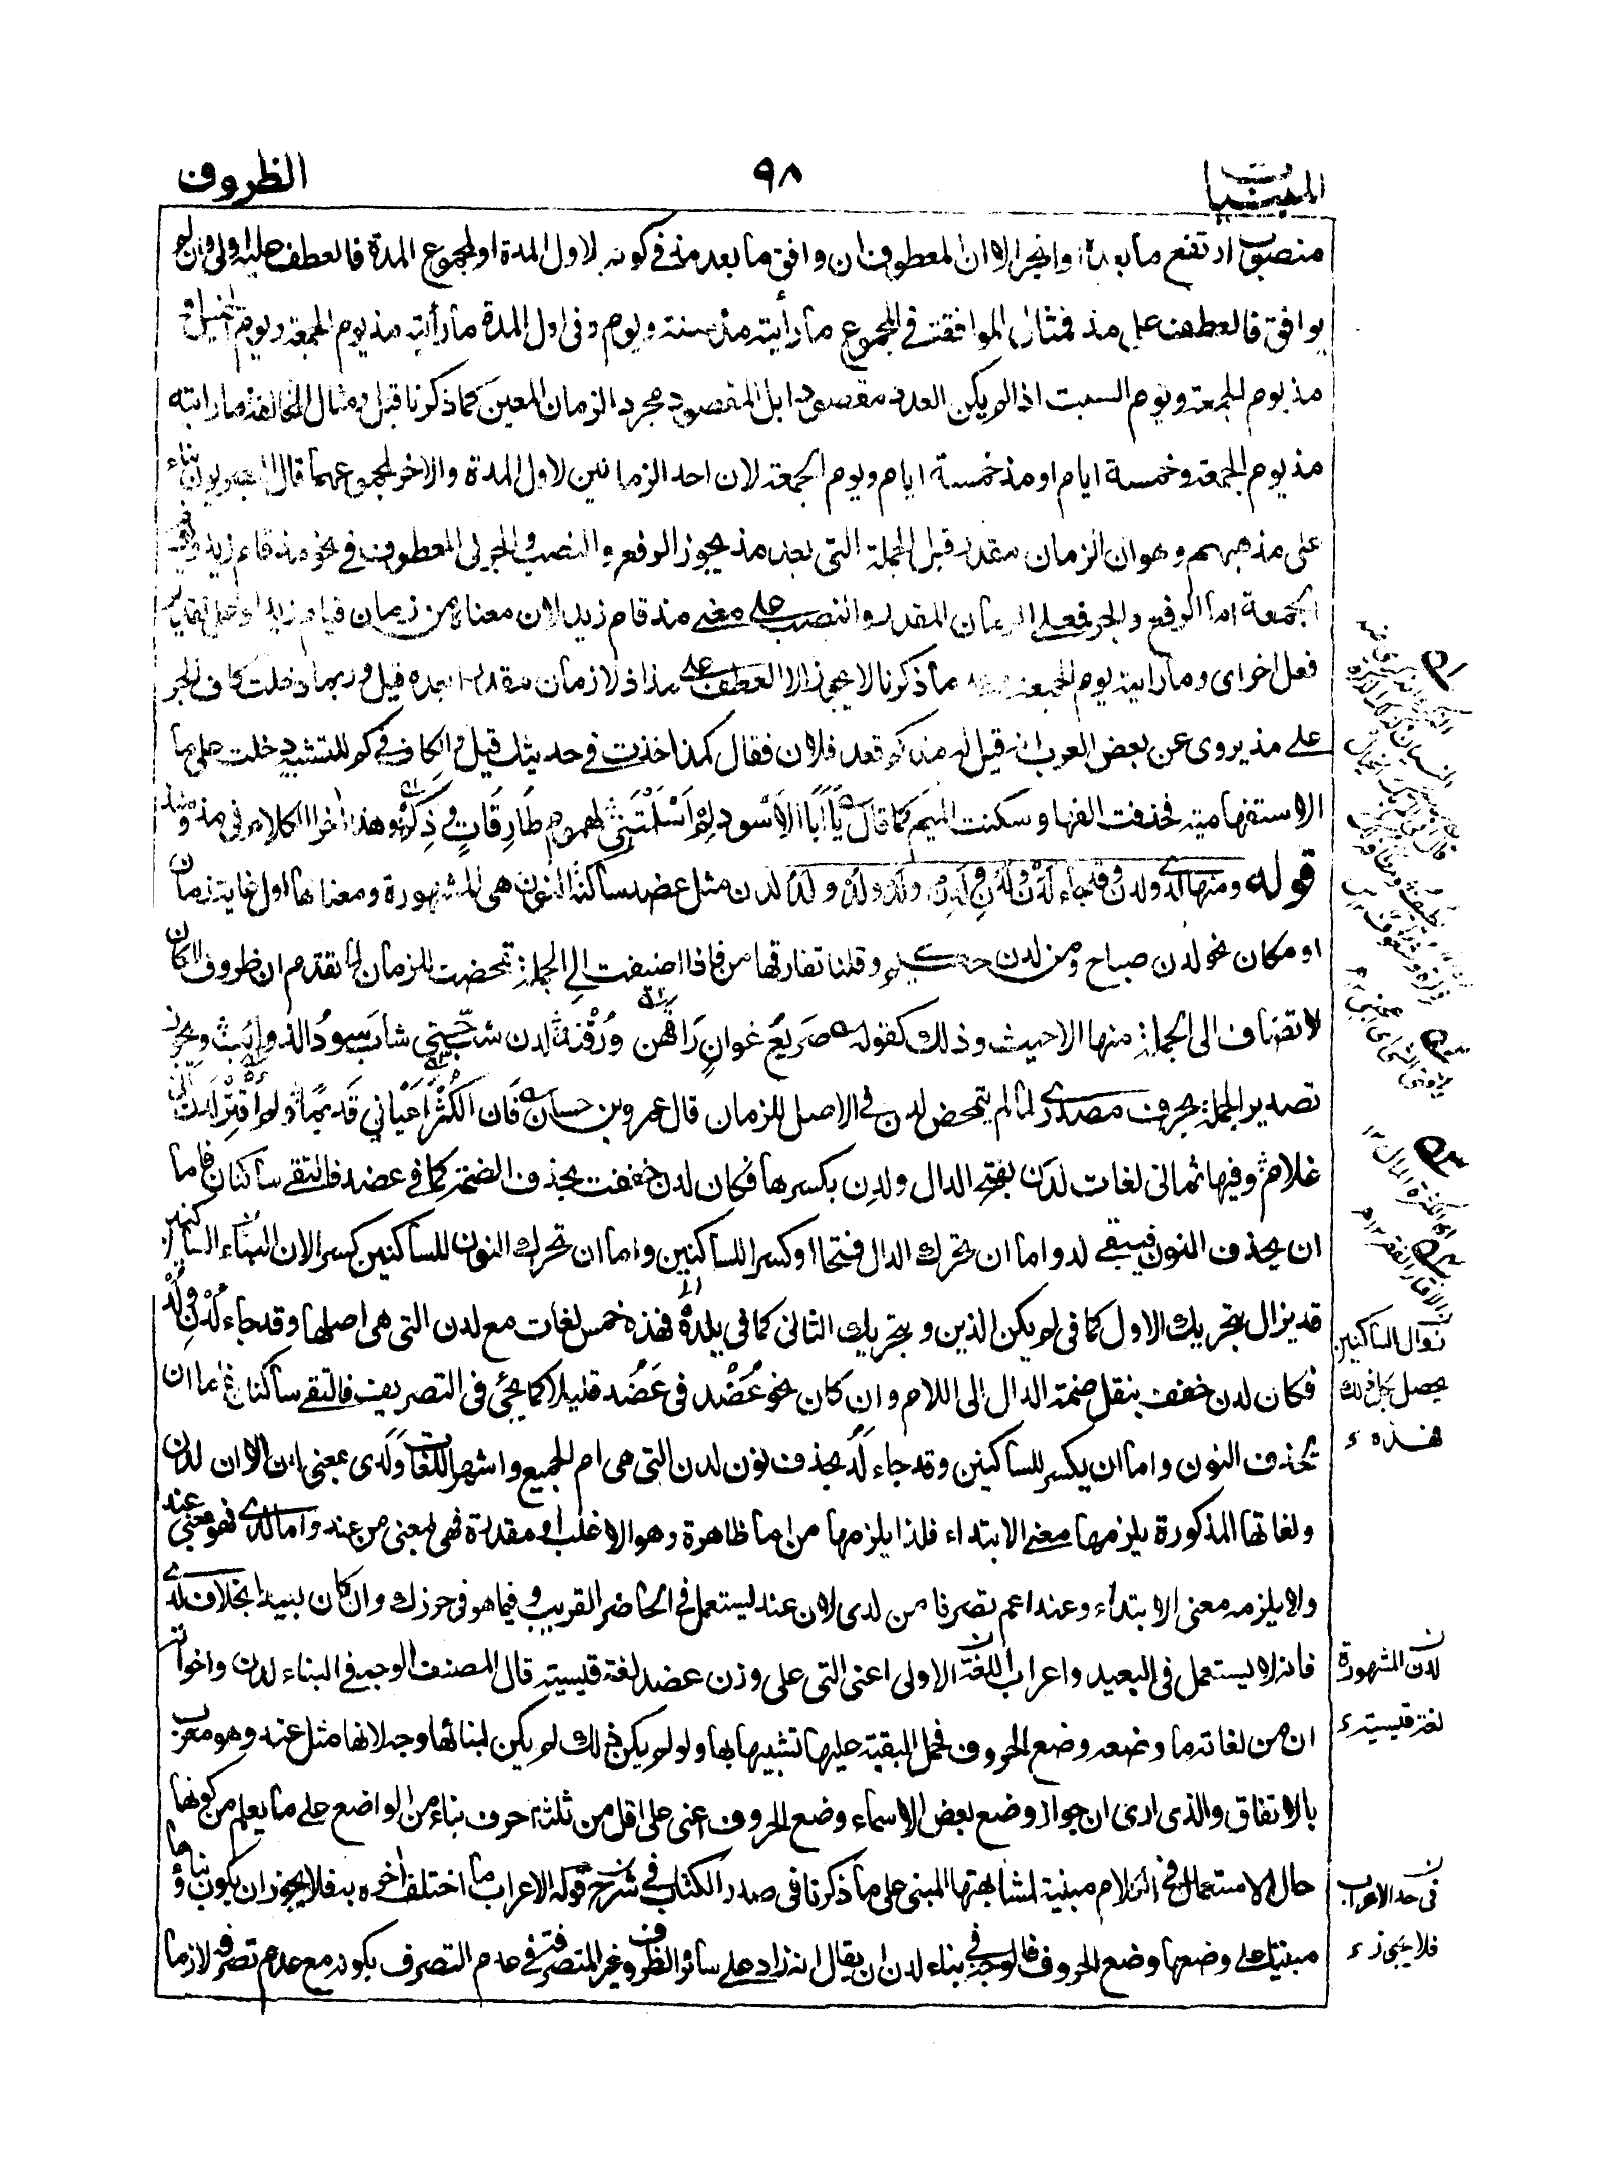 المبنيات
٩٨
الظروف
منصوب ارتفع ما بعده او انجر الا ان المعطوف ان وافق ما بعد مذ في كونه لاول المدة او لمجموع المدة فالعطف عليه اولى وان لم
يوافق فالعطف على مذ فمثال الموافقة في المجموع ما رأيته مذ سنة ويوم وفي اول المدة ما رأيته مذ يوم الجمعة ويوم
مذ يوم الجمعة ويوم السبت اذا لم يكن العدد مقصودا بل المقصود مجرد الزمان المعين كما ذكرنا قبل ومثال المخالفة ما رايته
مذ يوم الجمعة وخمسة ايام او مذ خمسة ايام ويوم الجمعة لان احد الزمانين لاول المدة والاخر لمجموعهما قال البصريون بناء
على مذهبهم وهو ان الزمان مقدر قبل الجملة التي بعد مذ يجوز الرفع والنصب والجر في المعطوف في نحو مذ قام زيد ويوم
الجمعة اما الرفع والجر فعلى الزمان المقدر والنصب على معنى مذ قام زيد لان معناه من زمان قيام زيد او على تقدير
فعل اخر اى وما رايته يوم الجمعة ما ذكرنا لا يجوز الا العطف على مذ اذ لا زمان مقدر بعده قيل وربما دخلت كاف الجر
على مذ يروى عن بعض العرب انه قيل له مذ كم قعد فلان فقال كمذ اخذت في حديثك قيل والكاف في كم للتشبيه دخلت على ما
الاستفهامية فحذفت الفها وسكنت الميم كما قال يَا أَبَا الْأَسْود لِمْ أَسْلَمْتَنِيْ لهموم طَارِقَاتٍ وَذِكَرْ وهذا اخر الكلام في مذ ومنذ
قوله ومنها لدى ولدن وقد جاء لَدَنْ ولَدِنْ ولُدْنِ ولَدْ ولُدْ ولَدُ لدن مثل عضد ساكنة النون هي المشهورة ومعناها اول غاية زمان
او مكان نحو لدن صباح ومن لدن حكيم وقلما تفارقها من فاذا اضيفت الى الجملة تمحضت للزمان لما تقدم ان ظروف المكان
لا تضاف الى الجملة منها الا حيث وذلك كقوله صَرِيعُ غوانٍ رَاقَهُنّ وَرُقْنَهُ لدن شبّ حتى شاب سودُ الذوائب ويجوز
تصدير الجملة بحرف مصدرى لما لم يتمحض لدن في الاصل للزمان قال عمرو بن حسان فَان الكُثْرَ أَعْيَاني قَديمًا ولم أُقْتِرْ لدن انى
غلام وفيها ثماني لغات لدَن بفتح الدال ولدِن بكسرها فكان لدن خففت بحذف الضمة كما في عضد فالتقى ساكنان فاما
ان يحذف النون فيبقى لد واما ان تحرك الدال فتحا او كسرا للساكنين واما ان تحرك النون للساكنين كسرا لان التقاء الساكنين
قد يزال بتحريك الاول كما في لم يكن الذين وبتحريك الثاني كما في يلدهُ فهذه خمس لغات مع لدن التي هي اصلها وقد جاء لُدْنِ ولُدْ
فكان لدن خفف بنقل ضمة الدال الى اللام وان كان نحو عُضْد في عَضُد قليلا كما يجئ في التصريف فالتقى ساكنان فاما ان
تحذف النون واما ان يكسر للساكنين وقد جاء لَدُ بحذف نون لدن التي هي ام الجميع واشهر اللغات ولَدى بمعنى لدن الا ان لدن
ولغاتها المذكورة يلزمها معنى الابتداء فلذا يلزمها من اما ظاهرة وهو الاغلب او مقدرة فهي بمعنى من عند واما لدى فهو بمعنى عند
ولا يلزمه معنى الابتداء وعند اعم تصرفا من لدى لان عند يستعمل في الحاضر القريب وفيما هو في حوزك وان كان بعيدا بخلاف لدى
فانه لا يستعمل في البعيد واعراب اللغة الاولى اعنى التي على وزن عضد لغة قيسية قال المصنف الوجه في البناء لدن واخواته
ان من لغاته ما وضعه وضع الحروف فحمل البقية عليها تشبيها بها ولو لم يكن ذلك لم يكن لبنائها وجه لانها مثل عند وهو معرب
بالاتفاق والذى ارى ان جواز وضع بعض الاسماء وضع الحروف اعنى على اقل من ثلثة احرف بناء من الواضع على ما يعلم من كونها
حال الاستعمال في الكلام مبنية لمشابهتها المبنى على ما ذكرنا في صدر الكتاب في شرح قوله الاعراب ما اختلف اخره به فلا يجوز ان يكون بناؤها
مبنيا على وضعها وضع الحروف فالوجه في بناء لدن ان يقال انه زاد على سائر الظروف غير المتصرفة في عدم التصرف بكونه مع عدم تصرفه لازما
زوال الساكنين
يحصل بكل ذلك
هذه
لدن المشهورة
لغة قيسية
في حد الاعراب
فلا يجوز